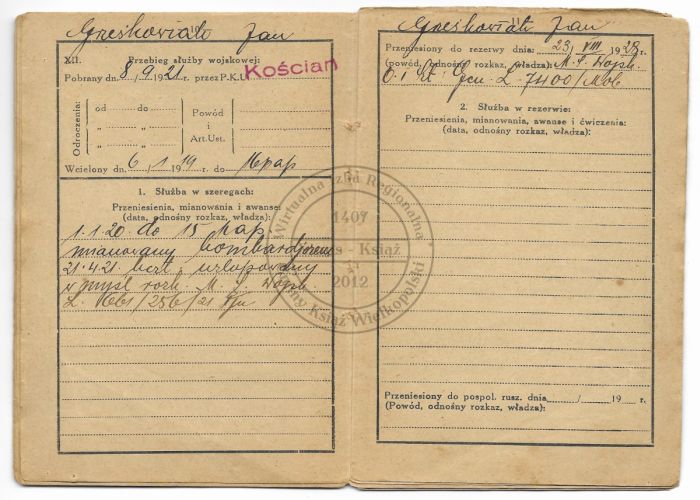 Greśkowiak Jan
XII. Przebieg służby wojskowej:
Pobrany dn. 8/9 1921. przez P.K.U. Kościan
Odroczenia:
od do
„ „
„ „
Powód
i
Art.Ust.
Wcielony dn. 6/1 1919 r. do
1. Służba w szeregach:
Przeniesienia, mianowania i awanse:
(data, odnośny rozkaz, władza):
1.1.20. do 15 pap.
mianowany bombardjerem
21.4.21. bezt. urlopowany
w myśl rozk. M. S. Wojsk.
L. /256/21
Greśkowiak Jan
Przeniesiony do rezerwy dnia: 23/VIII 1928 r.
(powód, odnośny rozkaz, władza): M. S. Wojsk.
L 7400/Mob
2. Służba w rezerwie:
Przeniesienia, mianowania, awanse i ćwiczenia:
(data, odnośny rozkaz, władza):
Przeniesiony do pospol. rusz. dnia / 19 r.
(Powód, odnośny rozkaz, władza):
Wirtualna Izba Regionalna
1407
Książ
2012
Książ Wielkopolski